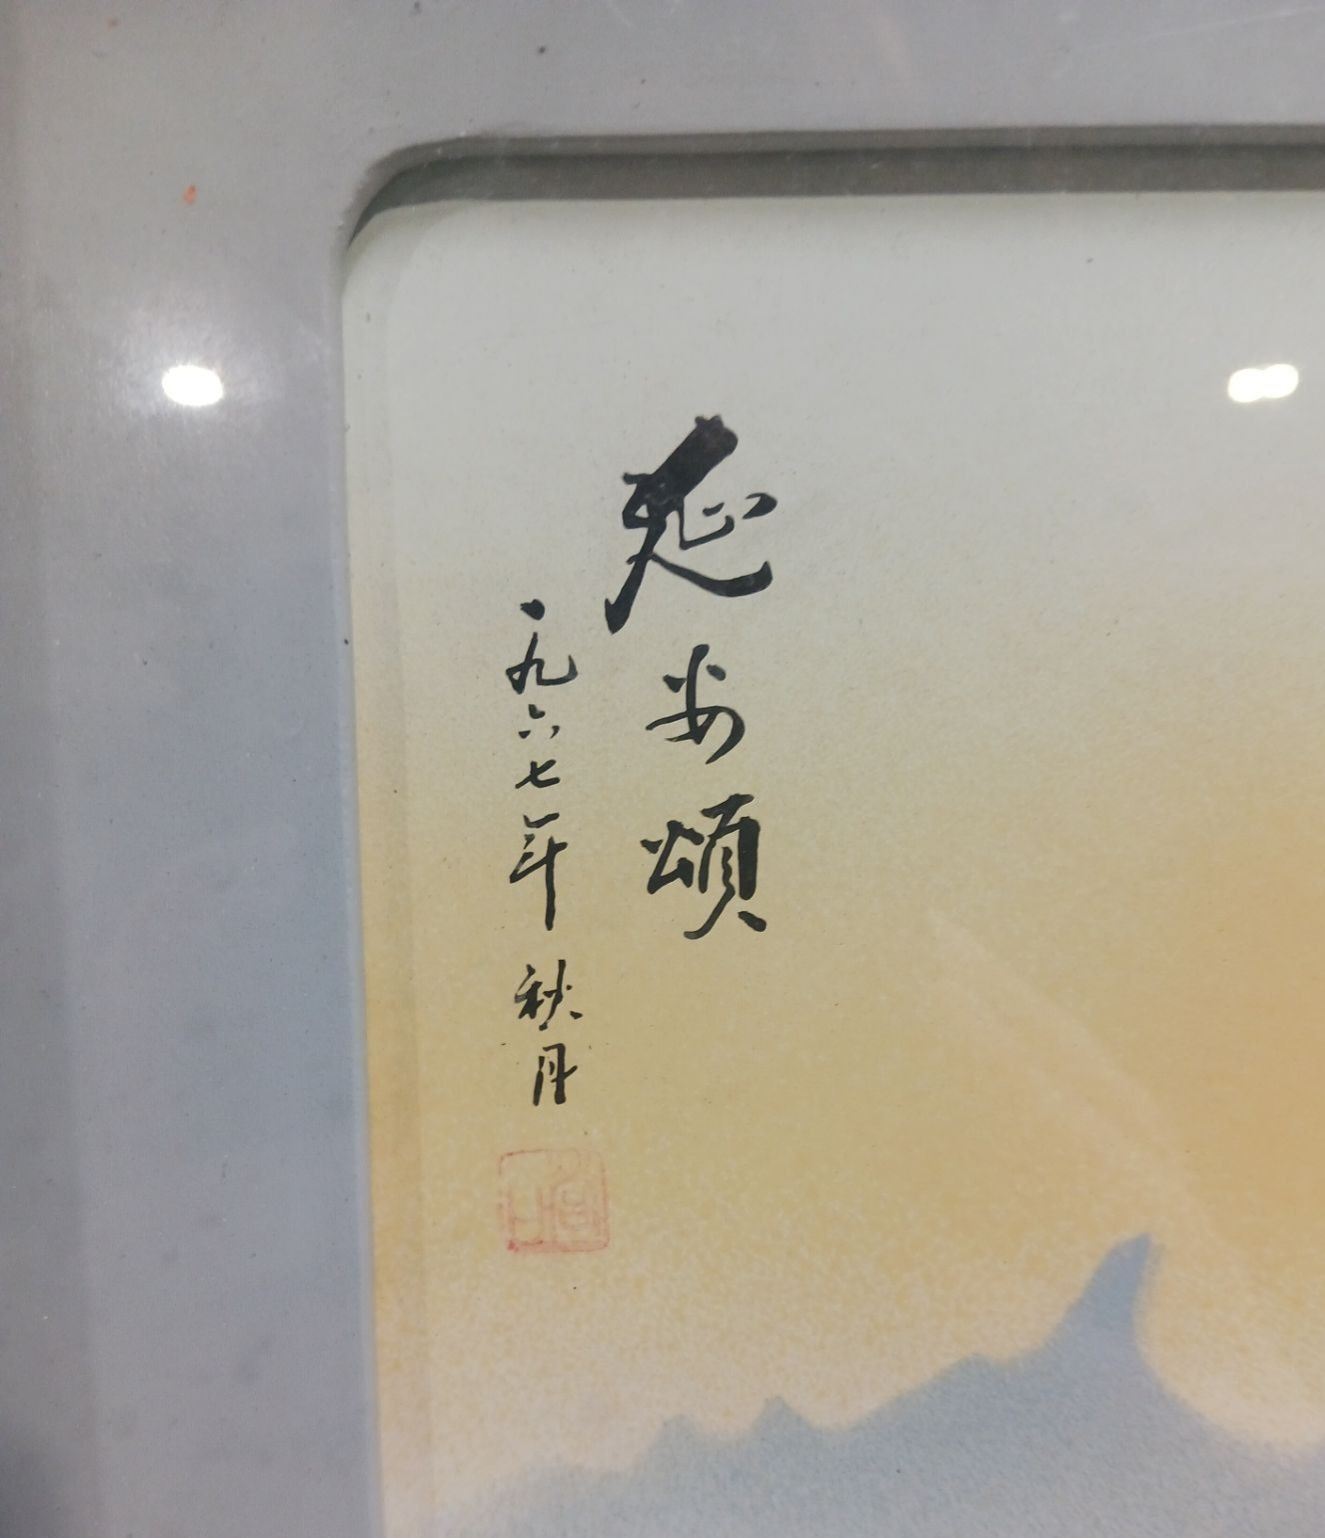 延安頌
一九六七年秋月